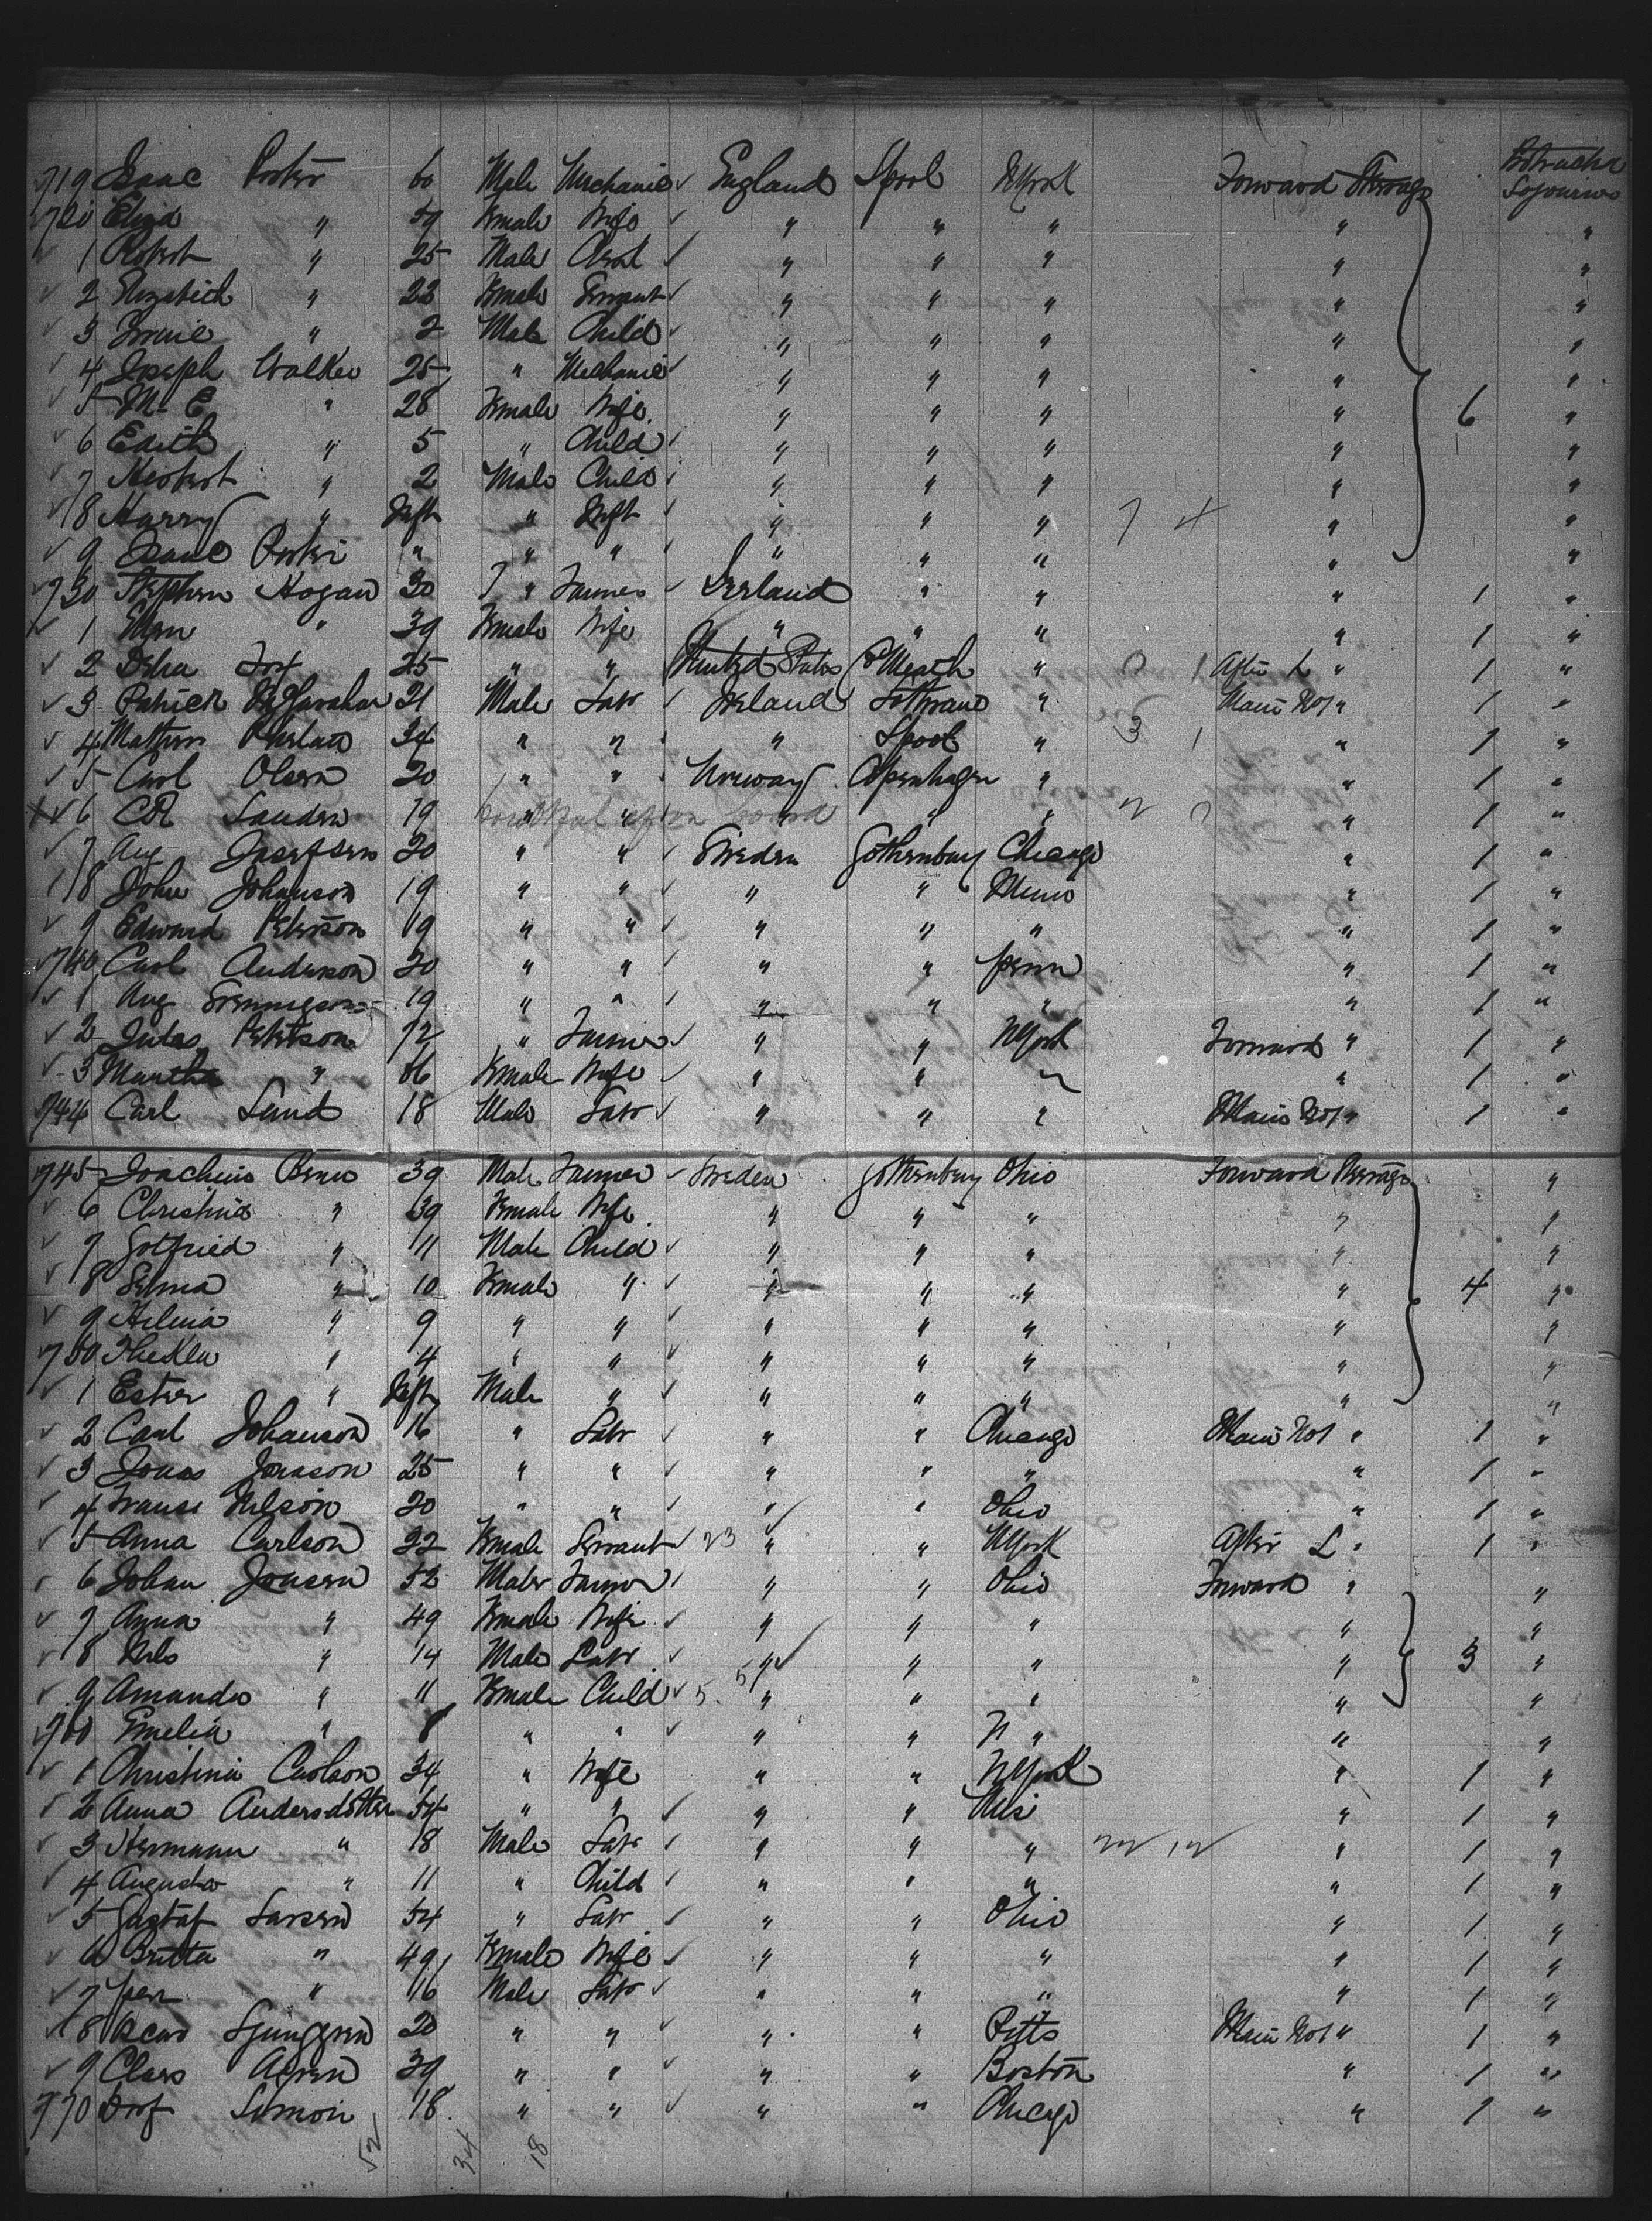 Protracted
719 Isaac Porter 60 Male Mechanic England Lpool NYork Forward Steerage Sojourn
720 Eliza " 59 Fmale Wife " " " " "
1 Robert " 25 Male Clerk " " " " "
2 Elizabeth " 22 Fmale Servant " " " " "
3 " 2 Male Child " " " " "
4 Joseph Walker 25 " Mechanic " " " " "
5 M E " 28 Fmale Wife " " " " 6 "
6 Edith " 5 " Child " " " " "
7 Herbert " 2 Male Child " " " " "
8 Harry " Inft " Inft " " " 7 4 " "
9 Isaac Porter " " " " " " " "
730 Stephen Hogan 30 " Farmer Ireland " " " 1 "
1 " 39 Fmale Wife " " " " 1 "
2 25 " " United States " 0 1 After L " 1 "
3 Patrick 21 Male Labr Ireland " Main No 1 " 1 "
4 34 " " " Lpool " 3 1 " 1 "
5 Carl Olsen 20 " " Norway Copenhagen " " 1 "
6 19 " " " " " " 1 "
7 Aug Josefsen 20 " " Sweden Gothenburg Chicago " 1 "
8 John Johanson 19 " " " " " 1 "
9 Edward Peterson 19 " " " " " " 1 "
740 Carl Anderson 20 " " " " Penn " 1 "
1 Aug 19 " " " " " " 1 "
2 Peterson 72 " Farmer " " NYork Forward " 1 "
3 Martha " 66 Fmale Wife " " " " 1 "
744 Carl Lund 18 Male Labr " " " Main No 1 " 1 "
745 Joachim 39 Male Farmer Sweden Gothenburg Ohio Forward Steerage "
6 Christina " 39 Fmale Wife " " " " "
7 Gotfried " 11 Male Child " " " " "
8 Selma " 10 Fmale " " " " " 4 "
9 Helena " 9 " " " " " " "
750 Thekla " 4 " " " " " " "
1 Ester " Inft Male " " " " " "
2 Carl Johanson 16 " Labr " " Chicago Main No 1 " 1 "
3 Jonas Jonason 25 " " " " " " 1 "
4 Nelson 20 " " " " Ohio " 1 "
5 Anna Carlson 22 Fmale Servant 23 " " NYork After L " 1 "
6 Johan Jonsen 52 Male Farmer " " Ohio Forward " "
7 Anna " 49 Fmale Wife " " " " "
8 Nels " 14 Male Labr " " " " 3 "
9 Amanda " 11 Fmale Child " " " " "
760 Emelia " 8 " " " " " " "
1 Christina Carlson 34 " Wife " " NYork " 1 "
2 Anna Andersdotter 54 " " " " " 1 "
3 Hermann " 18 Male Labr " " " 22 12 " 1 "
4 Augusta " 11 " Child " " " " 1 "
5 Gustaf Larsen 54 " Labr " " Ohio " 1 "
6 Britta " 49 Fmale Wife " " " " 1 "
7 Per " 16 Male Labr " " " " 1 "
8 Oscar Ljunggren 20 " " " " Pitts Main No 1 " 1 "
9 Claes 39 " " " " Boston " 1 "
770 Simon 18 " " " " Chicago " 1 "
52 34 18